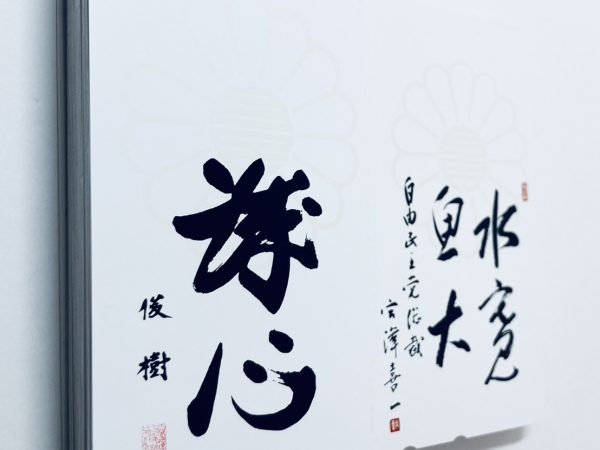 水寛
魚大
自由民主党総裁
宮澤喜一
心
俊樹